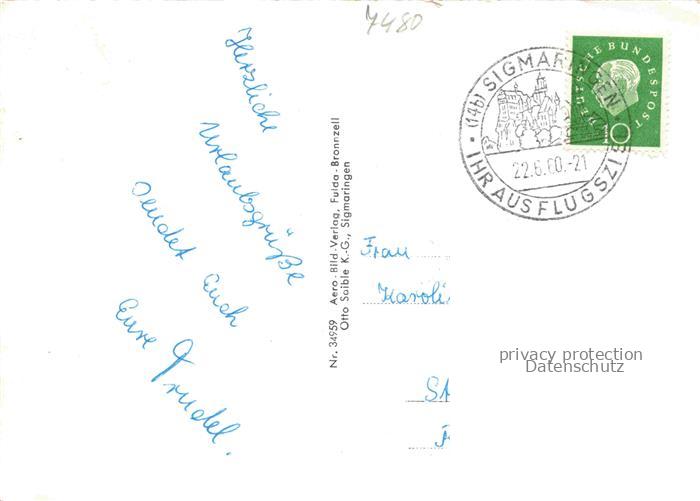 7480
Herzliche
Urlaubsgrüße
sendet Euch
Eure Trudel.
Nr. 34959 Aero-Bild-Verlag, Fulda-Bronnzell
Otto Saible K.-G., Sigmaringen
DEUTSCHE BUNDESPOST
10
(14b) SIGMARINGEN
22.6.60.-21
IHR AUSFLUGSZI
Frau
Karoli
St
privacy protection
Datenschutz